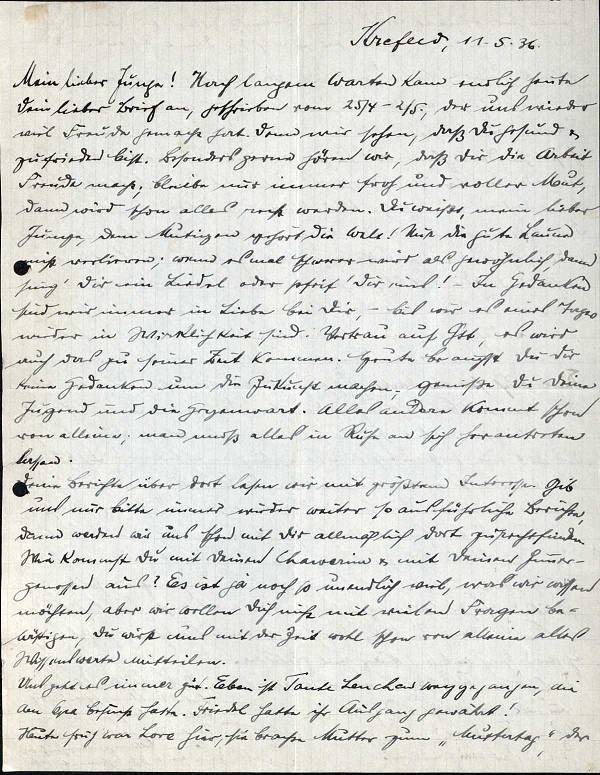 Krefeld, 11.5.36.
Mein lieber Junge! Nach langem Warten kam endlich heute
Dein lieber Brief an, geschrieben vom 25/4 - 2/5, der uns wieder
viel Freude gemacht hat. Denn wir sehen, daß Du gesund &
zufrieden bist. Besonders gerne hören wir, daß Dir die Arbeit
Freude macht; bleibe nur immer froh und voller Mut,
dann wird schon alles recht werden. Du weißt, mein lieber
Junge, dem Mutigen gehört die Welt! Nur die gute Laune
nicht verlieren; wenn es mal schwerer wird als gewöhnlich, dann
sing' Dir ein Liedel oder pfeif' Dir eins! - In Gedanken
sind wir immer in Liebe bei Dir, - bis wir es eines Tages
wieder in Wirklichkeit sind. Vertrau auf Gott, es wird
auch das zu seiner Zeit kommen. Heute brauchst Du Dir
keine Gedanken um die Zukunft machen, genieße Du Deine
Jugend und die Gegenwart. Alles andere kommt schon
von alleine; man muß alles in Ruhe an sich herantreten
lassen.
Deine Berichte über dort lesen wir mit größtem Interesse. Gib
uns nur bitte immer wieder weiter so ausführliche Berichte,
dann werden wir uns schon mit Dir allmählich dort zurechtfinden.
Wie kommst Du mit Deinen Chawerim & mit Deinen Zimmer-
genossen aus? Es ist ja noch so unendlich viel, was wir wissen
möchten, aber wir wollen Dich nicht mit vielen Fragen be-
lästigen, Du wirst uns mit der Zeit wohl schon von alleine alles
Wissenswerte mitteilen.
Uns geht es immer gut. Eben ist Tante Lenchen weggegangen, die
den Opa besucht hatte. Friedel hatte ihr Ausgang gewährt!
Heute früh war Lore hier, sie brachte Mutter zum „Muttertag", der